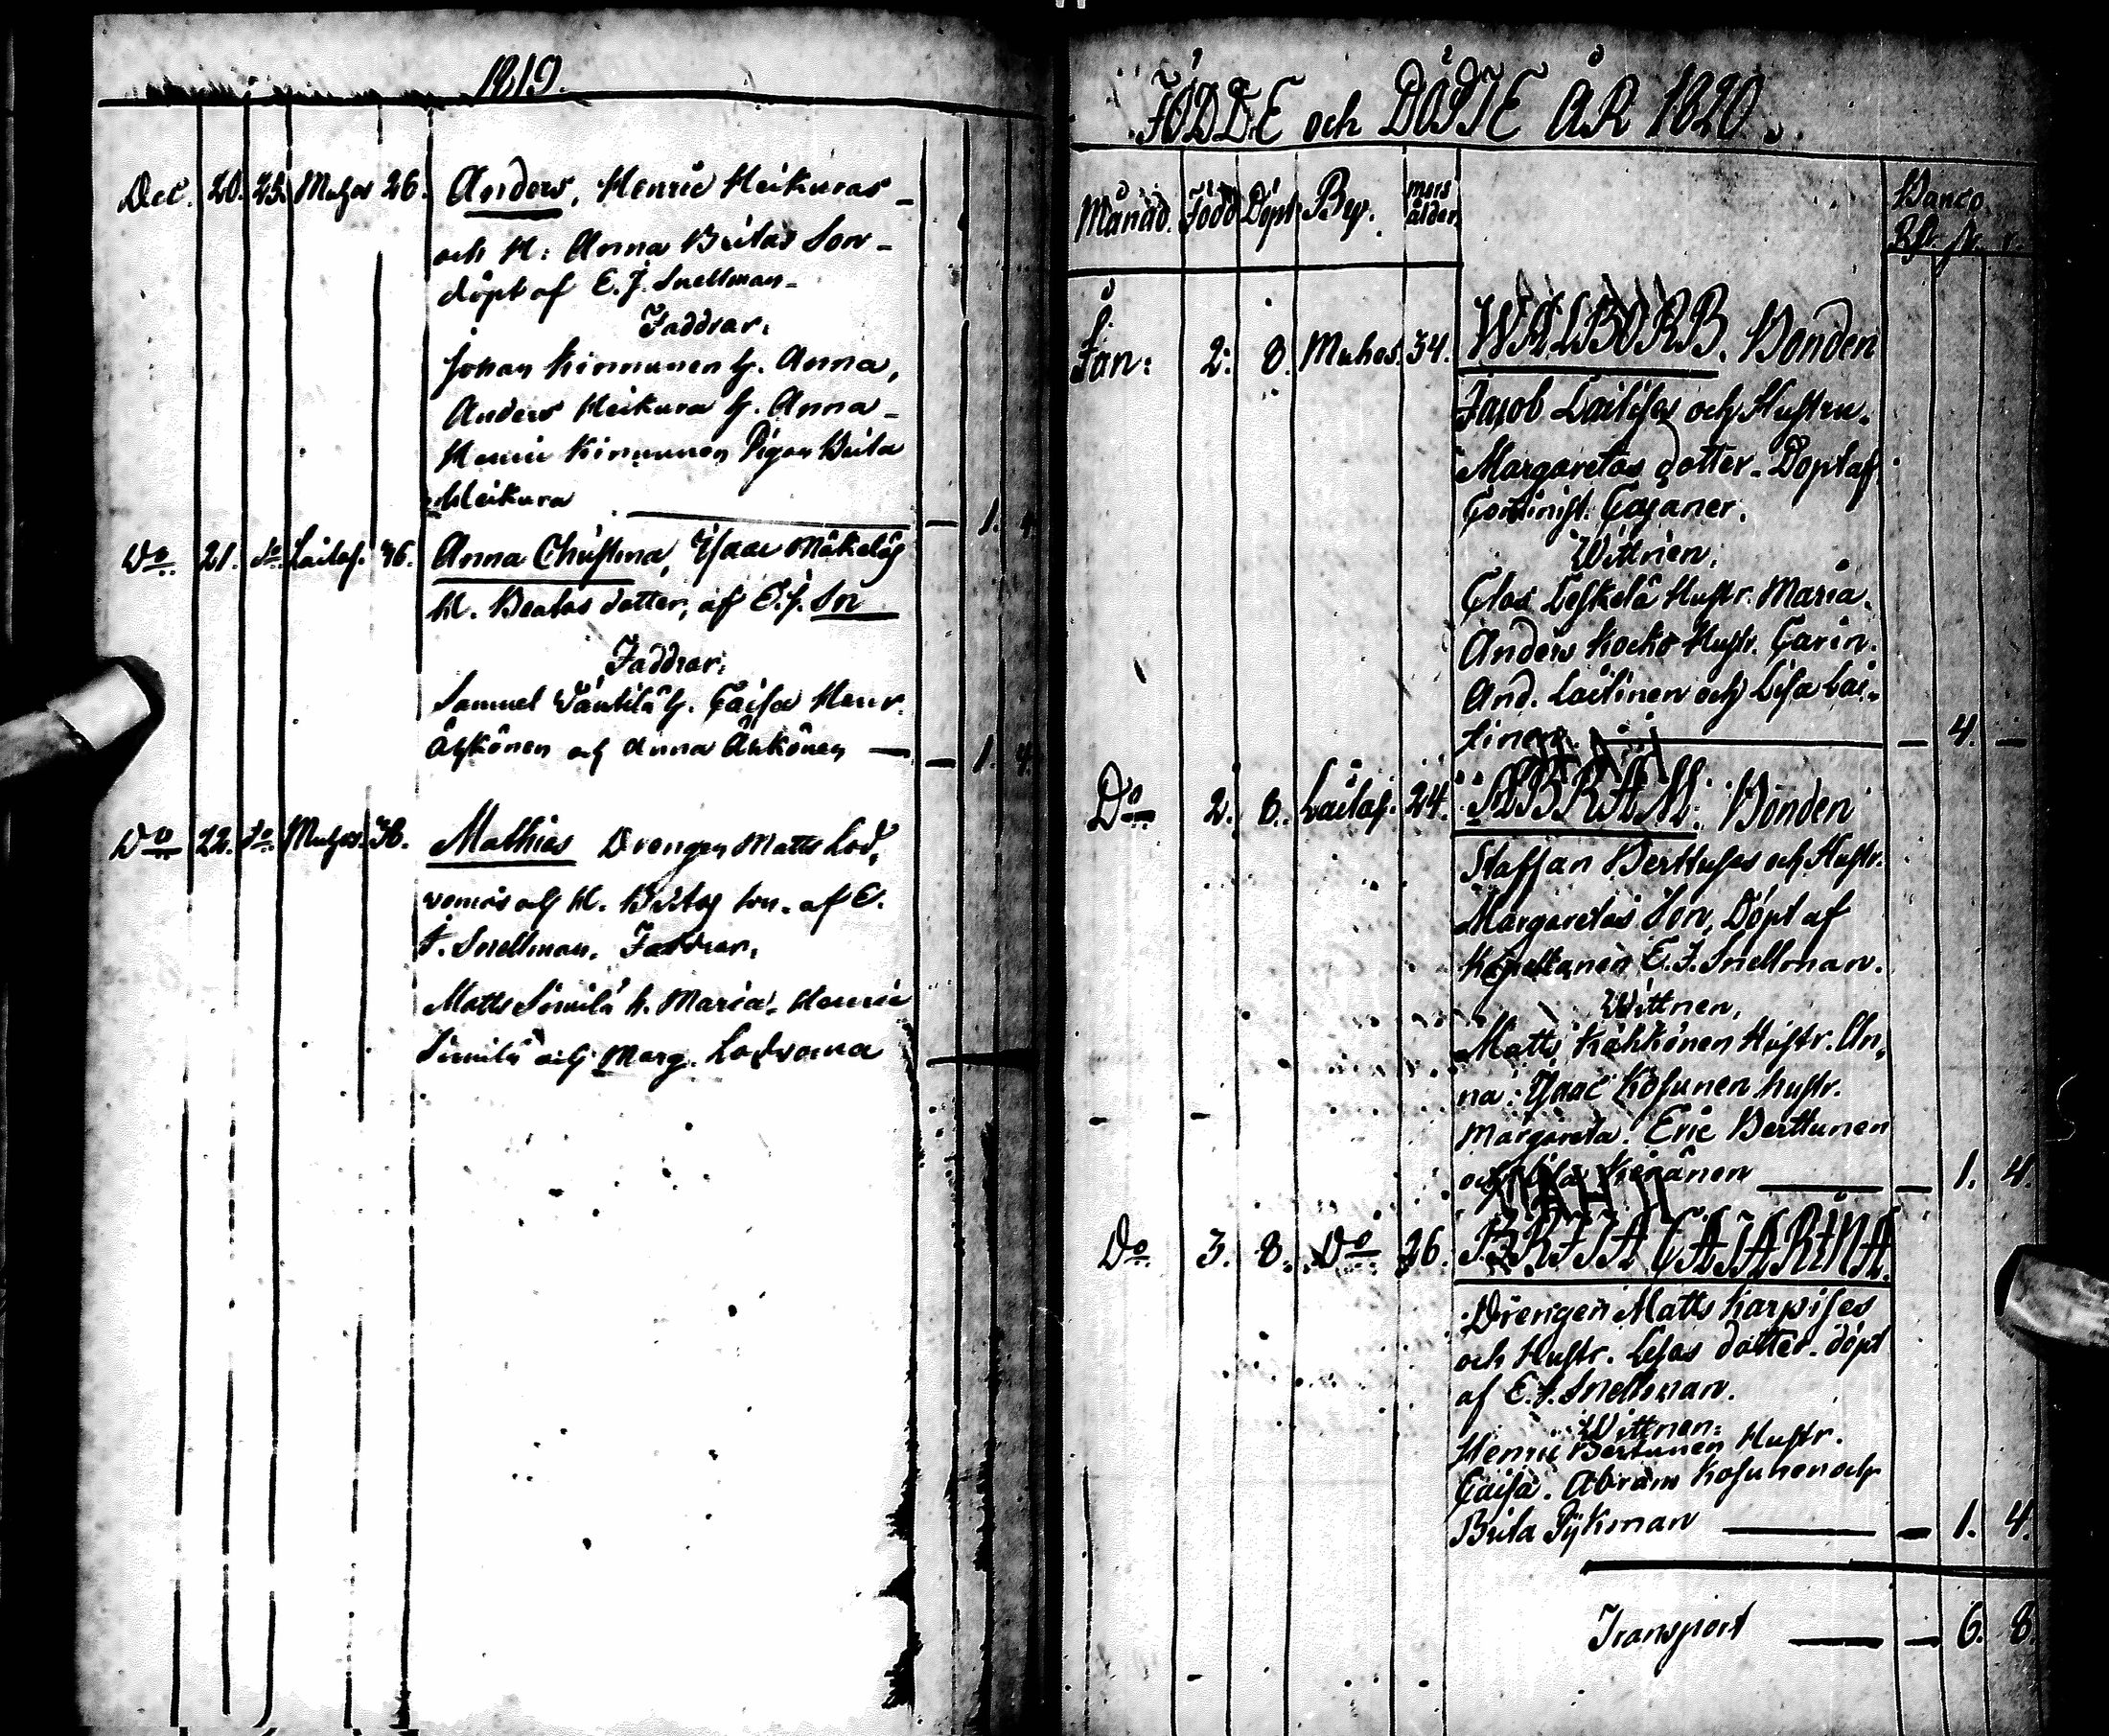 1819.
Dec. 20. 25. Muhos 26. Anders, Henric Heikuras
och H: Anna Britas Son
döpt af E. J. Snellman
Faddrar:
Johan Kinnunen h. Anna,
Anders Heikura h. Anna
Henric Kinnunen Pigan Brita
Heikura — 1. 4
Do 21. do Lailas. 36. Anna Christina, Isaac Mäkeläs
H. Beatas dotter, af E. J. Sn
Faddrar:
Samuel h. Caisa Henr.
Ähkönen och Anna Ähkönen — 1. 4.
Do 22. do Muhos. Mathias Drengen Matts Lod,
vomas och H. Britas son. af E.
J. Snellman. Faddrar,
Matts Similä h. Maria. Henric
Similä och Marg. Lodvoma
FÖDDE och DÖPTE ÅR 1820.
Månad. Född Döpt By. mors ålder Banco
Rd. sk. r.
Jan: 2. 8. Muhos. 34. WALBORB. Bonden
Jacob Laitises och Hustru
Margaretas dotter. Döpt af
Cominist. Cajaner.
Wittnen.
Clas Leskelä Hustr. Maria.
Anders Kocko Hustr. Carin.
And. Laitinen och Lisa Lai-
tinen. — 4. —
Do 2. 8. Lailas. 24. ABRAM. Bonden
Staffan Berttuses och Hustr.
Margaretas Son, Döpt af
Kapellanen E. J. Snellman.
Wittnen,
Matts Kähkönen Hustr. An,
na. Isaac Kosunen hustr.
Margareta. Eric Berttunen
och — 1. 4.
Do 3. 8. Do 26. BRITA CATARINA
Drengen Matts Karpises
och Hustr. Lisas dotter. döpt
af E. J. Snellman.
Wittnen:
Henric Bertunen Hustr.
Caisa. Abram Kosunen och
Brita Pykman — 1. 4.
Transport — 6. 8.